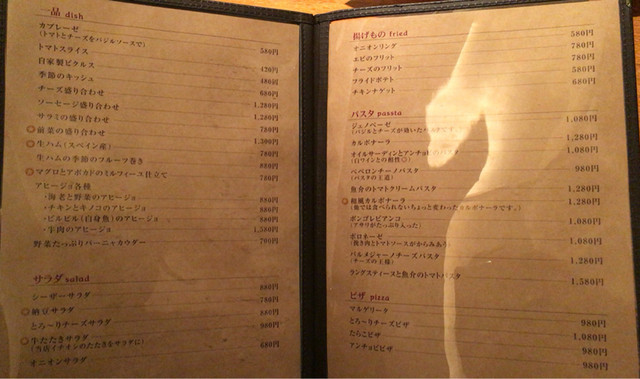 一品 dish
カプレーゼ
(トマトとチーズをバジルソースで)
トマトスライス 580円
自家製ピクルス 420円
季節のキッシュ 480円
チーズ盛り合わせ 680円
ソーセージ盛り合わせ 1,280円
サラミの盛り合わせ 1,280円
◎前菜の盛り合わせ 780円
◎生ハム(スペイン産) 1,200円
生ハムの季節のフルーツ巻き 780円
◎マグロとアボカドのミルフィーユ仕立て 880円
アヒージョ各種 780円
・海老と野菜のアヒージョ
・チキンとキノコのアヒージョ 880円
・ピルピル(白身魚)のアヒージョ 880円
・牛肉のアヒージョ 880円
野菜たっぷりバーニャカウダー 1,580円
700円
サラダ salad
シーザーサラダ 880円
◎納豆サラダ 780円
とろ〜りチーズサラダ 880円
◎牛たたきサラダ 980円
(当店イチオシのたたきをサラダに)
オニオンサラダ 680円
揚げもの fried
オニオンリング 580円
エビのフリット 780円
チーズのフリット 780円
フライドポテト 580円
チキンナゲット 680円
パスタ passta
ジェノベーゼ 1,080円
(バジルとチーズが効いた
カルボナーラ 1,280円
オイルサーディンとアンチョビのパスタ 1,080円
(白ワインとの相性◎)
ペペロンチーノパスタ 980円
(パスタの王道)
魚介のトマトクリームパスタ 1,280円
◎和風カルボナーラ 1,280円
(他では食べられないちょっと変わったカルボナーラです。)
ボンゴレビアンコ 1,080円
(アサリがたっぷり入った)
ボロネーゼ 1,080円
(挽き肉とトマトソースがからみあう)
パルメジャーノチーズパスタ 1,280円
(チーズの王様)
ラングスティーヌと魚介のトマトパスタ 1,580円
ピザ pizza
マルゲリータ 980円
とろ〜りチーズピザ 1,080円
たらこピザ 980円
アンチョビピザ 980円